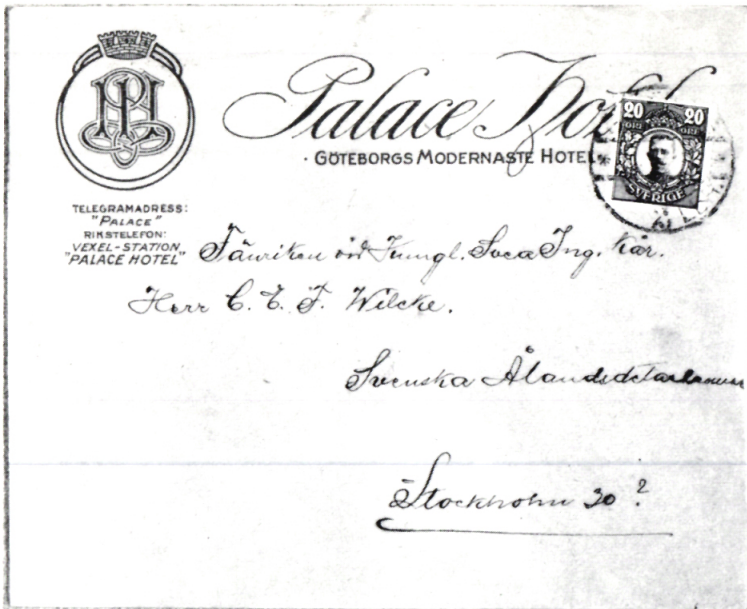 PH
Palace Hotel
· GÖTEBORGS MODERNASTE HOTEL
20 20
ÖRE ÖRE
SVERIGE
TELEGRAMADRESS:
"PALACE"
RIKSTELEFON:
VEXEL-STATION
"PALACE HOTEL"
Fänriken vid Kungl. Svea Ing. kår.
Herr C. E. F. Wilcke.
Svenska
Stockholm 30?